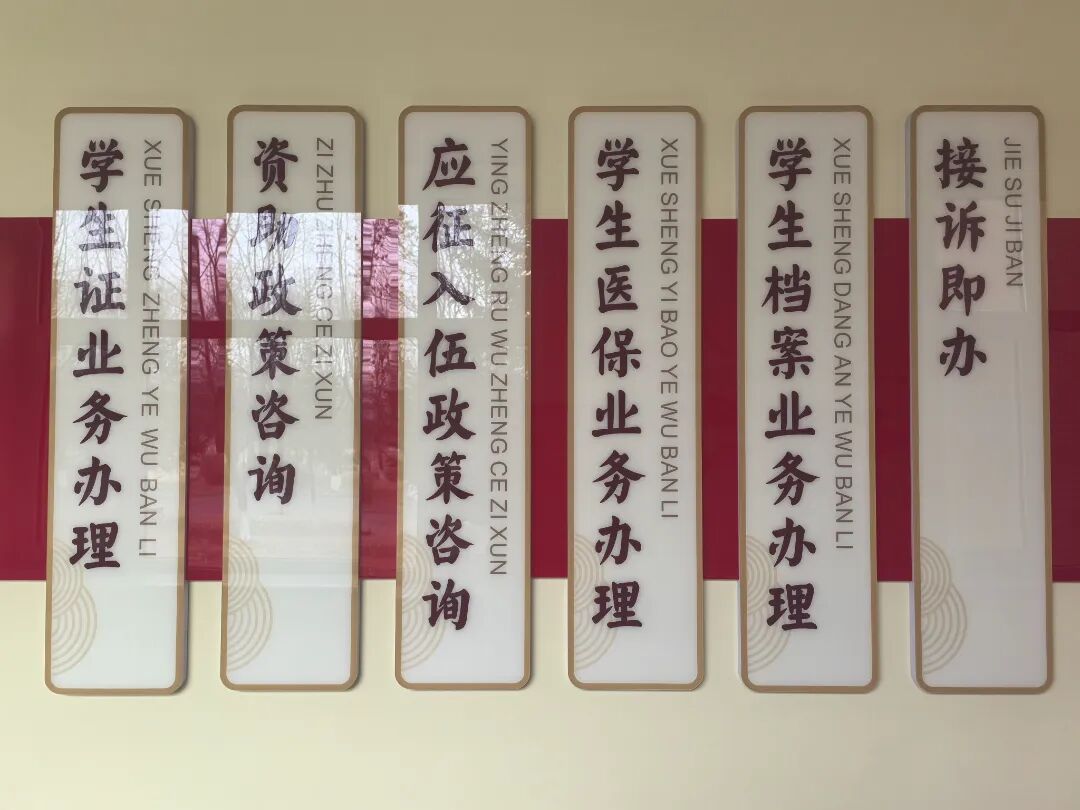 学生证业务办理
XUE SHENG ZHENG YE WU BAN LI
资助政策咨询
ZI ZHU ZHENG CE ZI XUN
应征入伍政策咨询
YING ZHENG RU WU ZHENG CE ZI XUN
学生医保业务办理
XUE SHENG YI BAO YE WU BAN LI
学生档案业务办理
XUE SHENG DANG AN YE WU BAN LI
接诉即办
JIE SU JI BAN